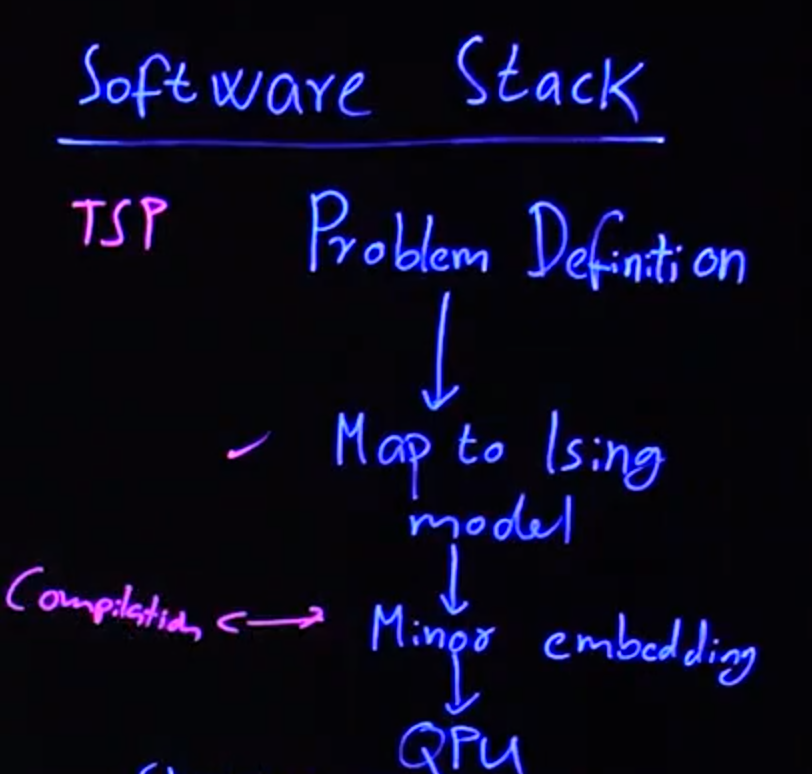 Software Stack
TSP Problem Definition
Map to Ising
model
Compilation Minor embedding
QPU